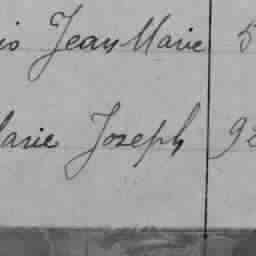 is Jean Marie 5
Marie Joseph 92